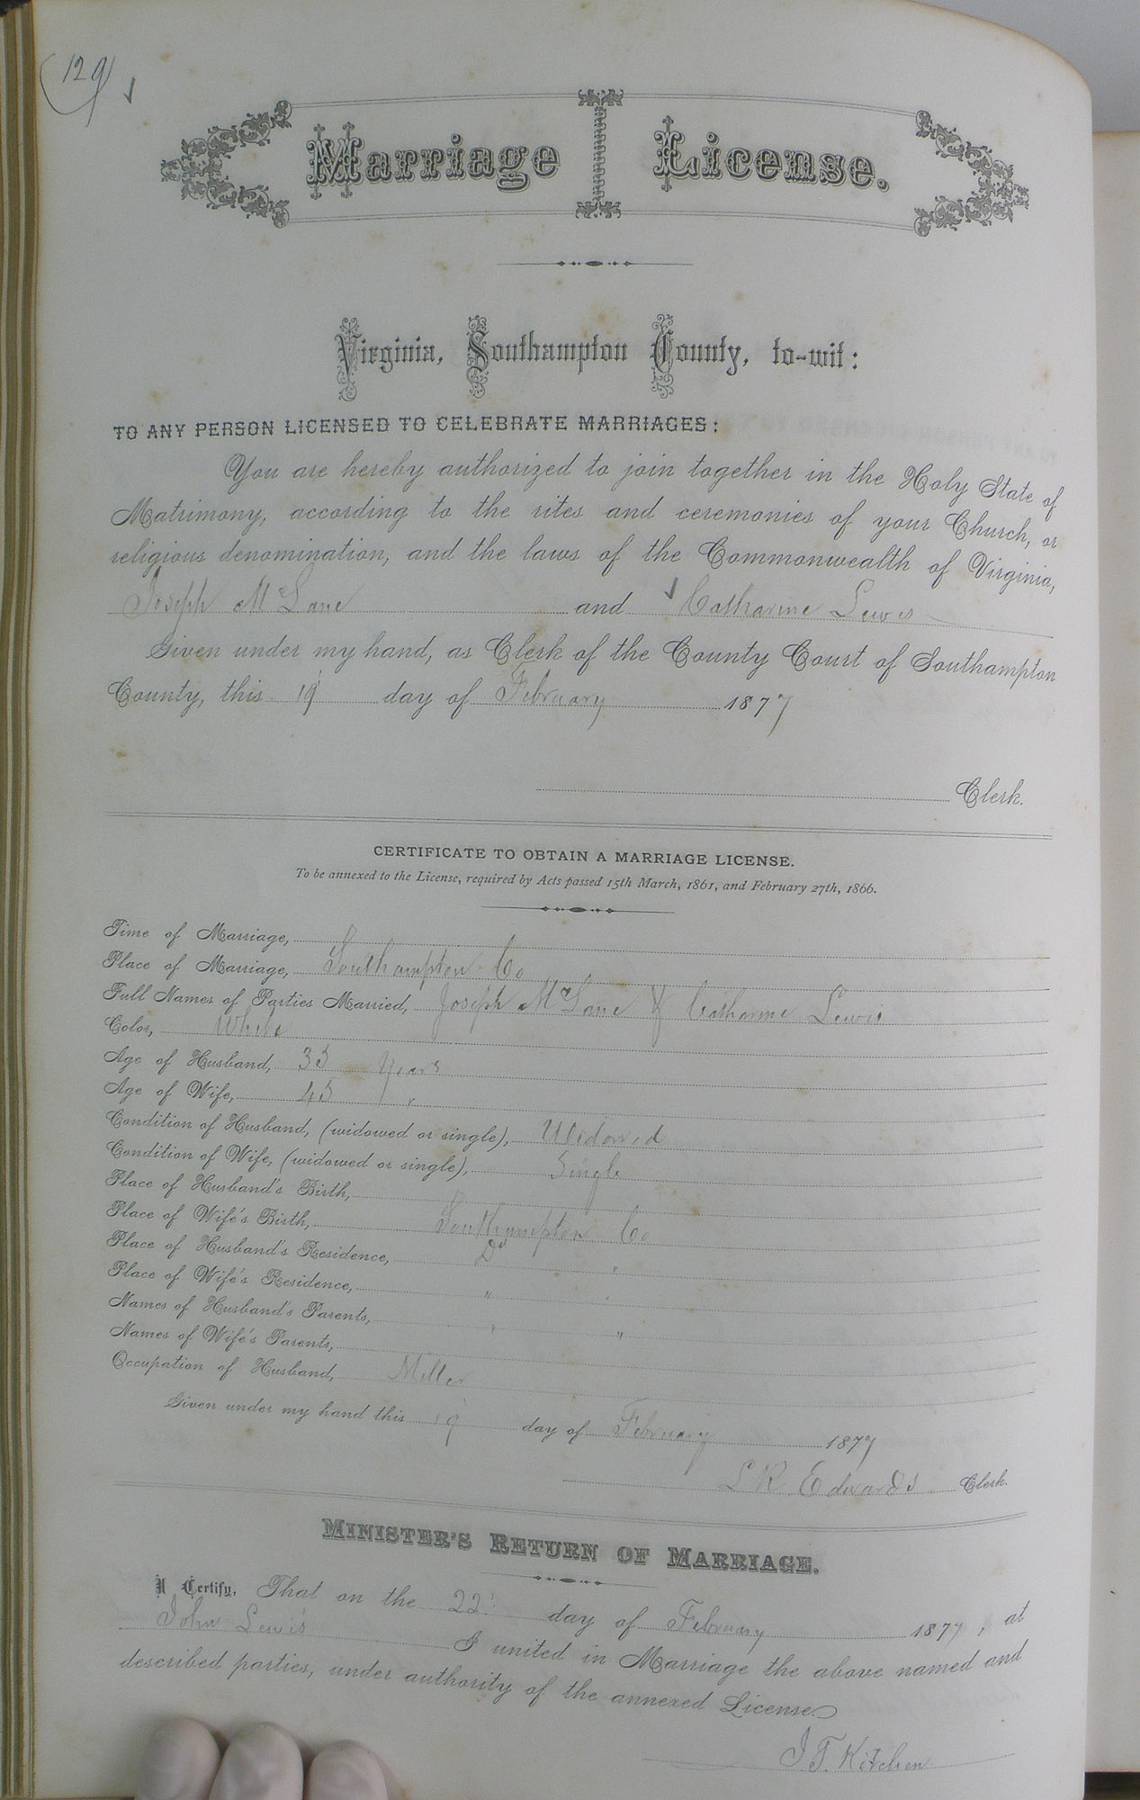 (129)
Marriage License.
Virginia, Southampton County, to-wit:
TO ANY PERSON LICENSED TO CELEBRATE MARRIAGES:
You are hereby authorized to join together in the Holy State of
Matrimony, according to the rites and ceremonies of your Church, or
religious denomination, and the laws of the Commonwealth of Virginia,
Joseph McLane and Catharine Lewis
Given under my hand, as Clerk of the County Court of Southampton
County, this 19 day of February 1877
Clerk.
CERTIFICATE TO OBTAIN A MARRIAGE LICENSE.
To be annexed to the License, required by Acts passed 15th March, 1861, and February 27th, 1866.
Time of Marriage,
Place of Marriage, Southampton Co
Full Names of Parties Married, Joseph McLane & Catharine Lewis
Color, White
Age of Husband, 35 Years
Age of Wife, 45 "
Condition of Husband, (widowed or single), Widowed
Condition of Wife, (widowed or single), Single
Place of Husband's Birth,
Place of Wife's Birth, Southampton Co
Place of Husband's Residence, Do "
Place of Wife's Residence, " "
Names of Husband's Parents, " "
Names of Wife's Parents,
Occupation of Husband, Miller
Given under my hand this 19 day of February 1877
L R Edwards Clerk.
MINISTER'S RETURN OF MARRIAGE.
I Certify, That on the 22 day of February 1877, at
John Lewis I united in Marriage the above named and
described parties, under authority of the annexed License.
J. T. Kitchen